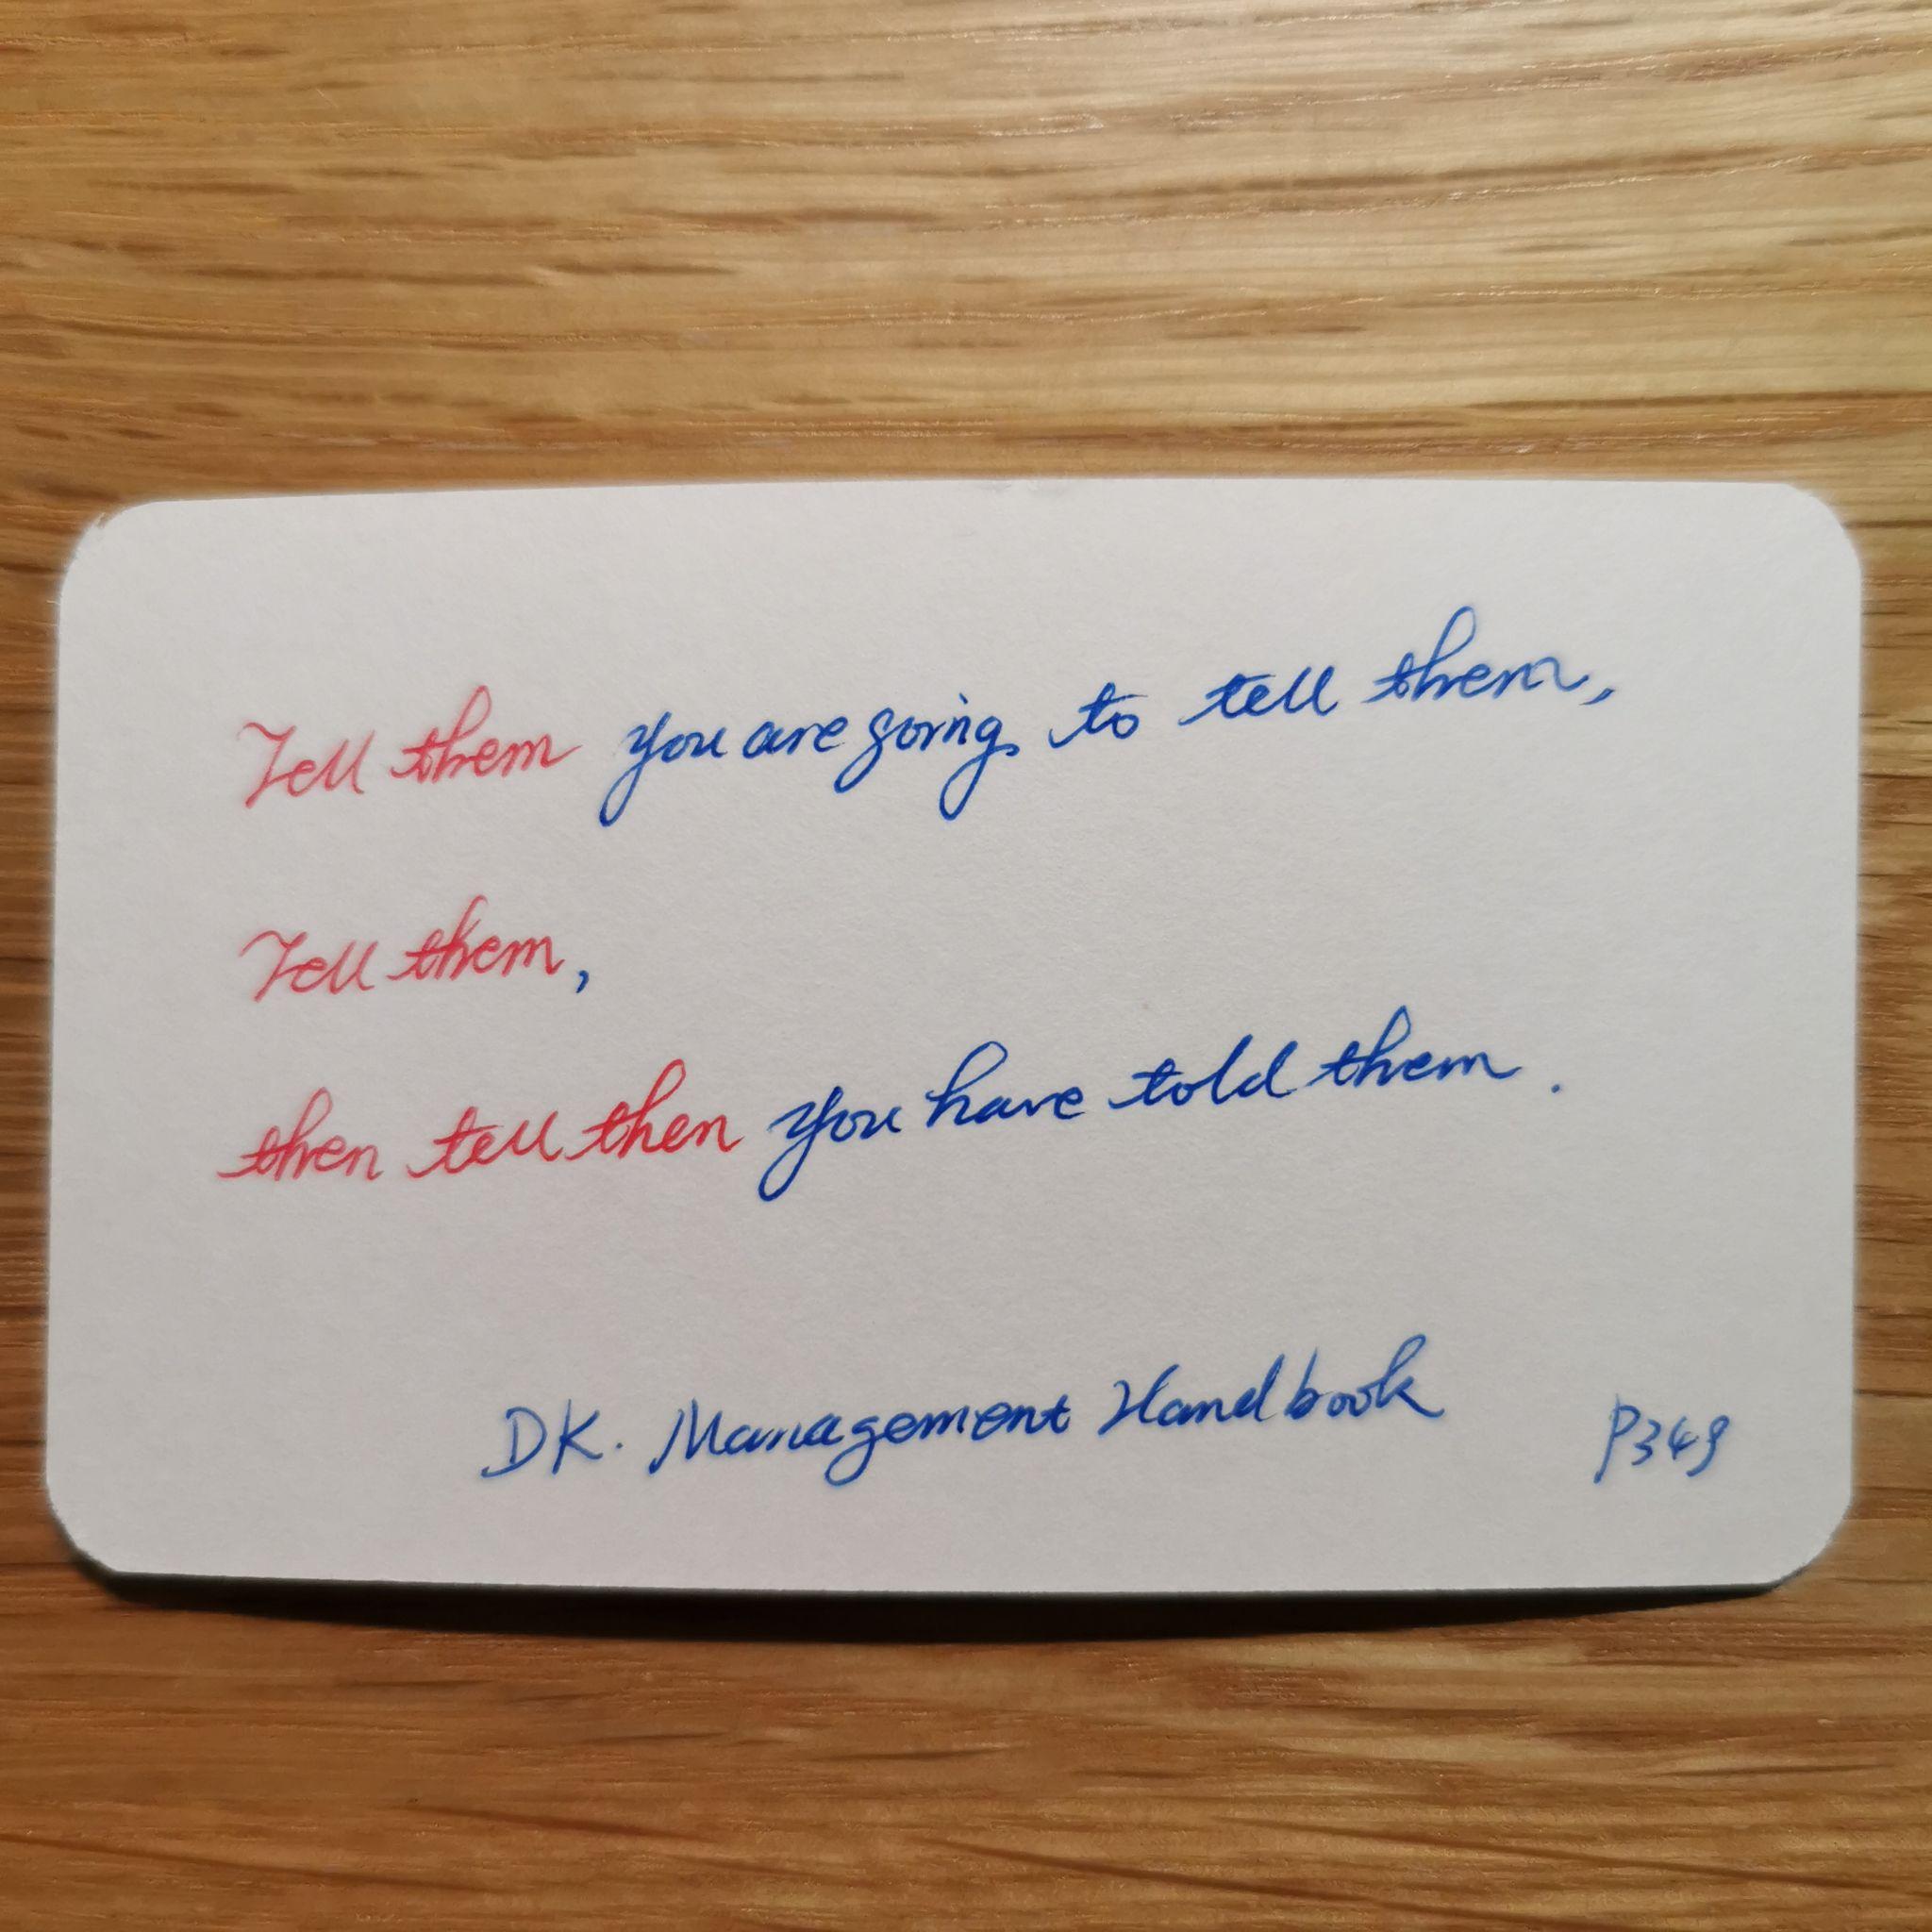 Tell them you are going to tell them,
Tell them,
then tell then you have told them.
DK. Management Handbook P349